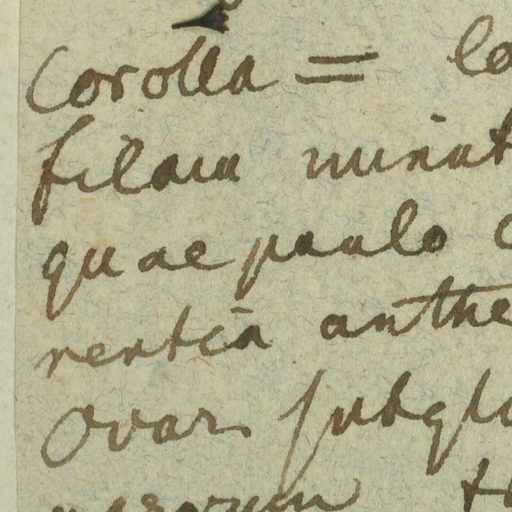 Corolla = lo
filam minut
quae paulo
rentia anthe
Ovar. subglo